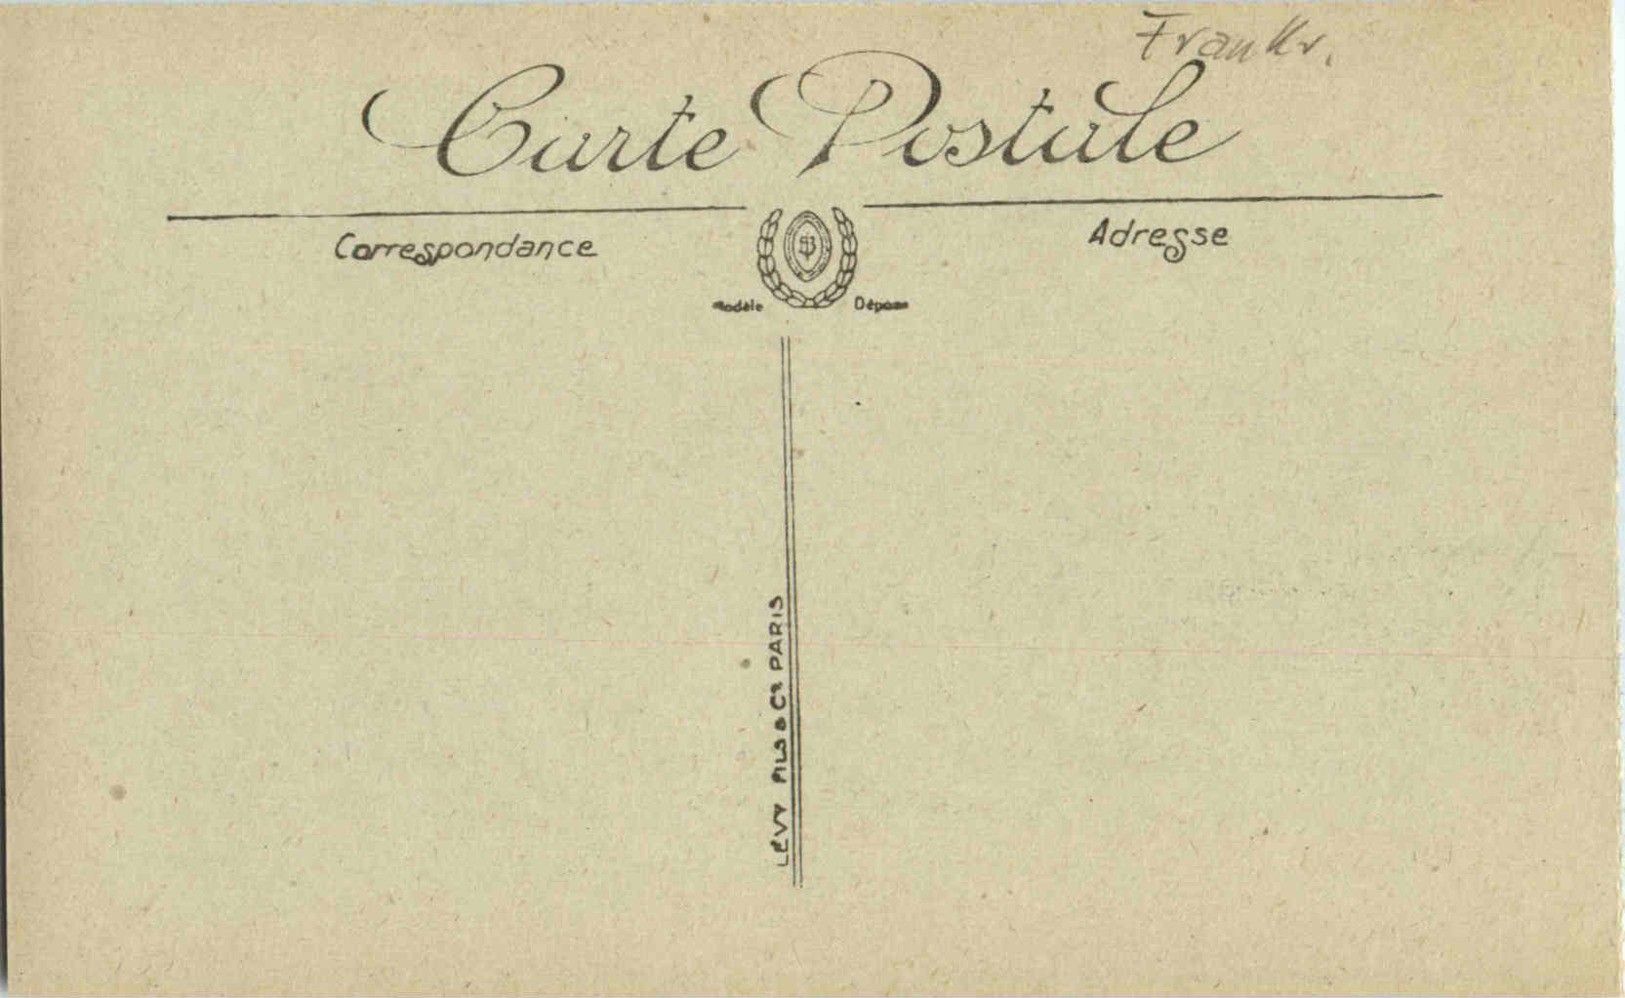 Frankr.
Carte Postale
Correspondance
Adresse
Modèle Déposé
LÉVY FILS & Cie PARIS